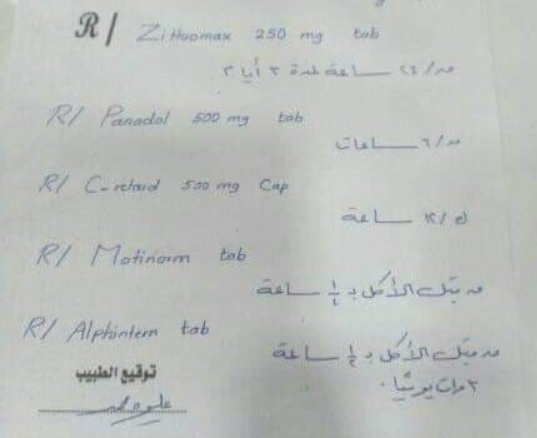 R/ Zithromax 250 mg tab
ص/٢٤ ساعة لمدة ٣ أيام
R/ Panadol 500 mg tab
ص/٦ ساعات
R/ C-retard 500 mg Cap
ك/١٢ ساعة
R/ Motinorm tab
ص قبل الأكل بـ ½ ساعة
R/ Alphintern tab
ص قبل الأكل بـ ½ ساعة
٣ مرات يوميًا.
توقيع الطبيب